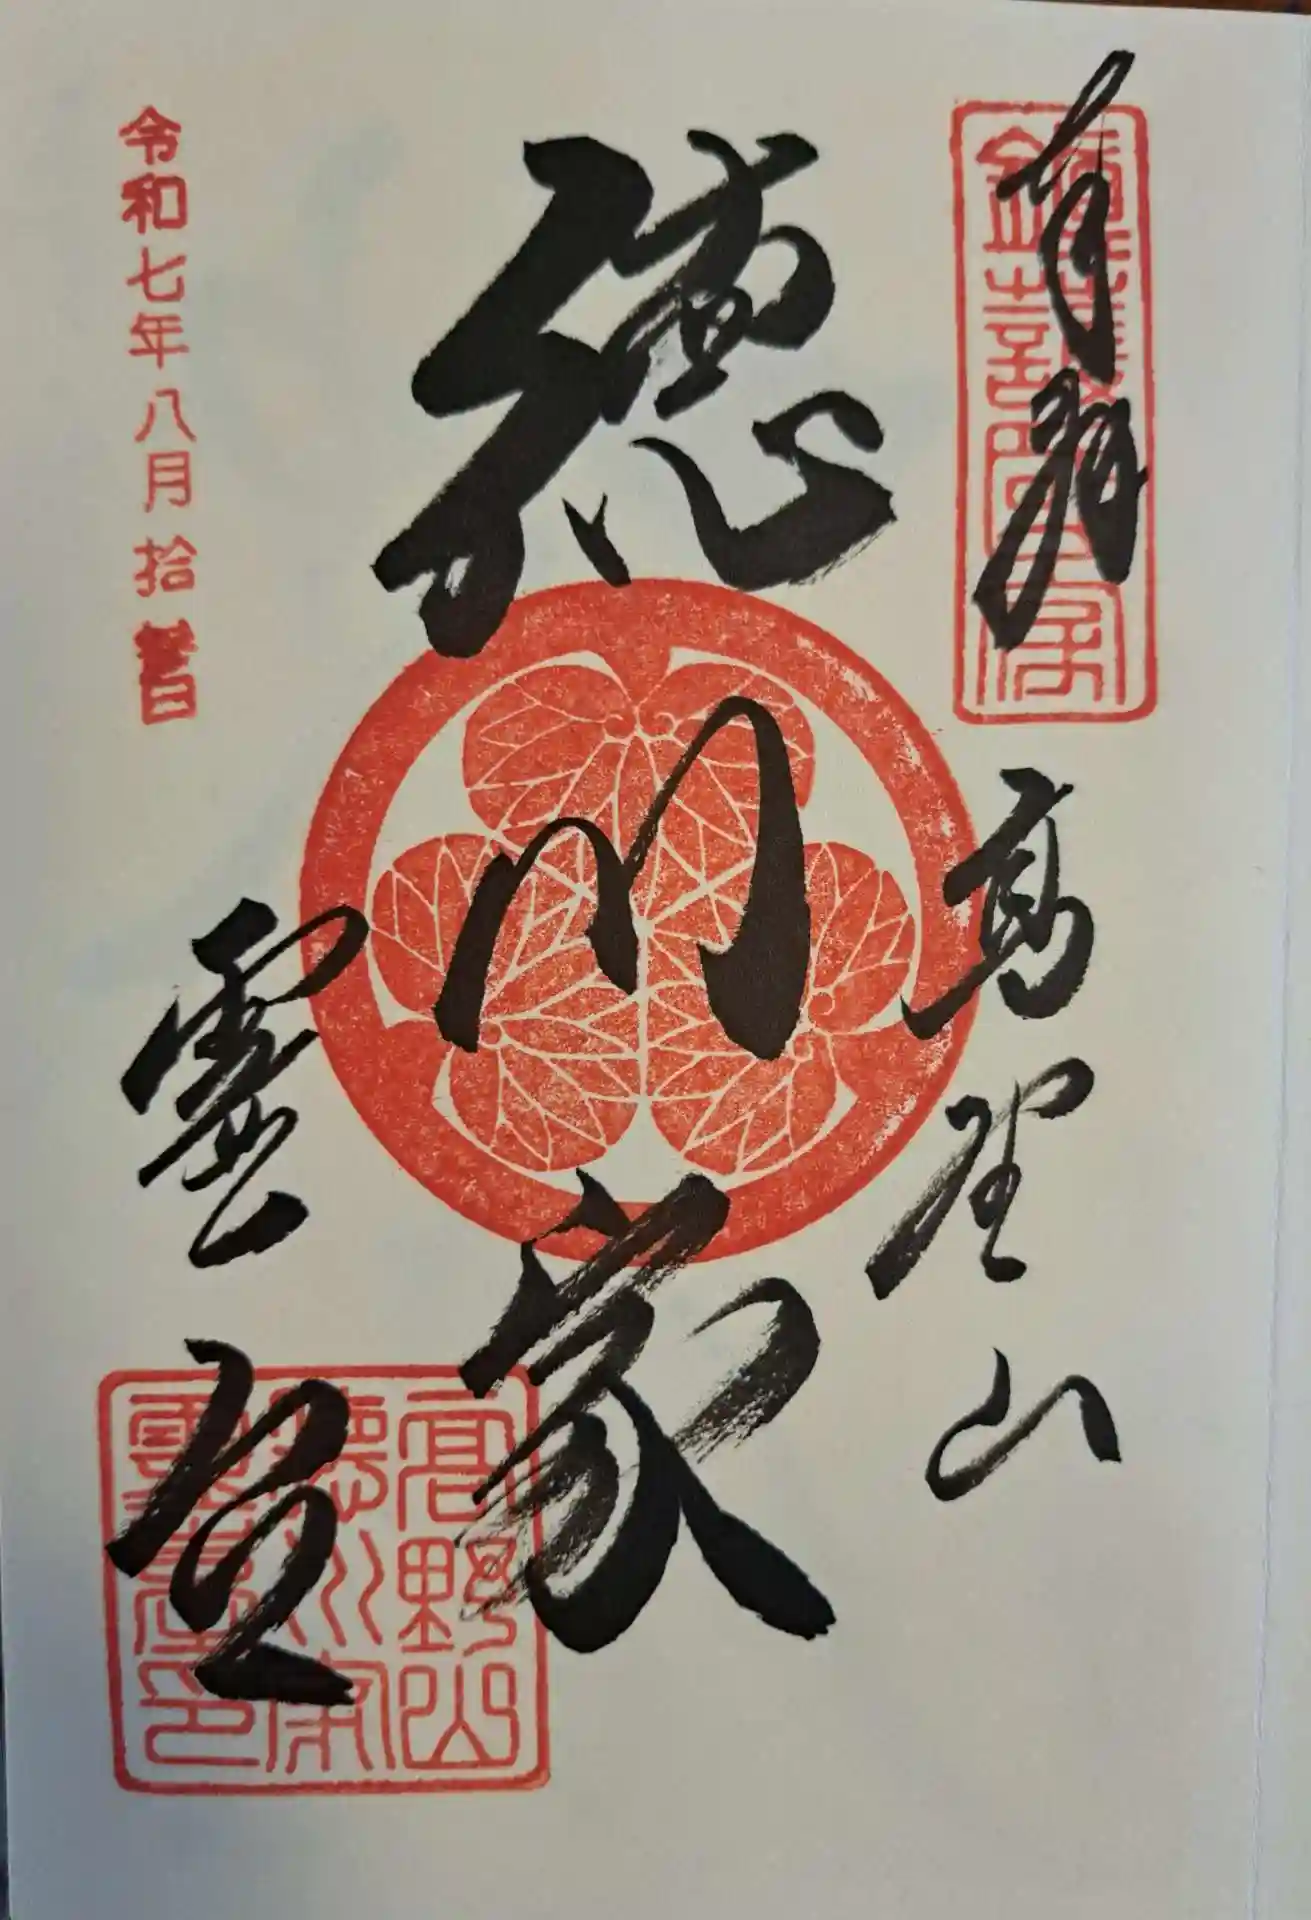 奉拝
高野山
徳川家
霊台
令和七年八月拾
高野山
徳川家
霊台印